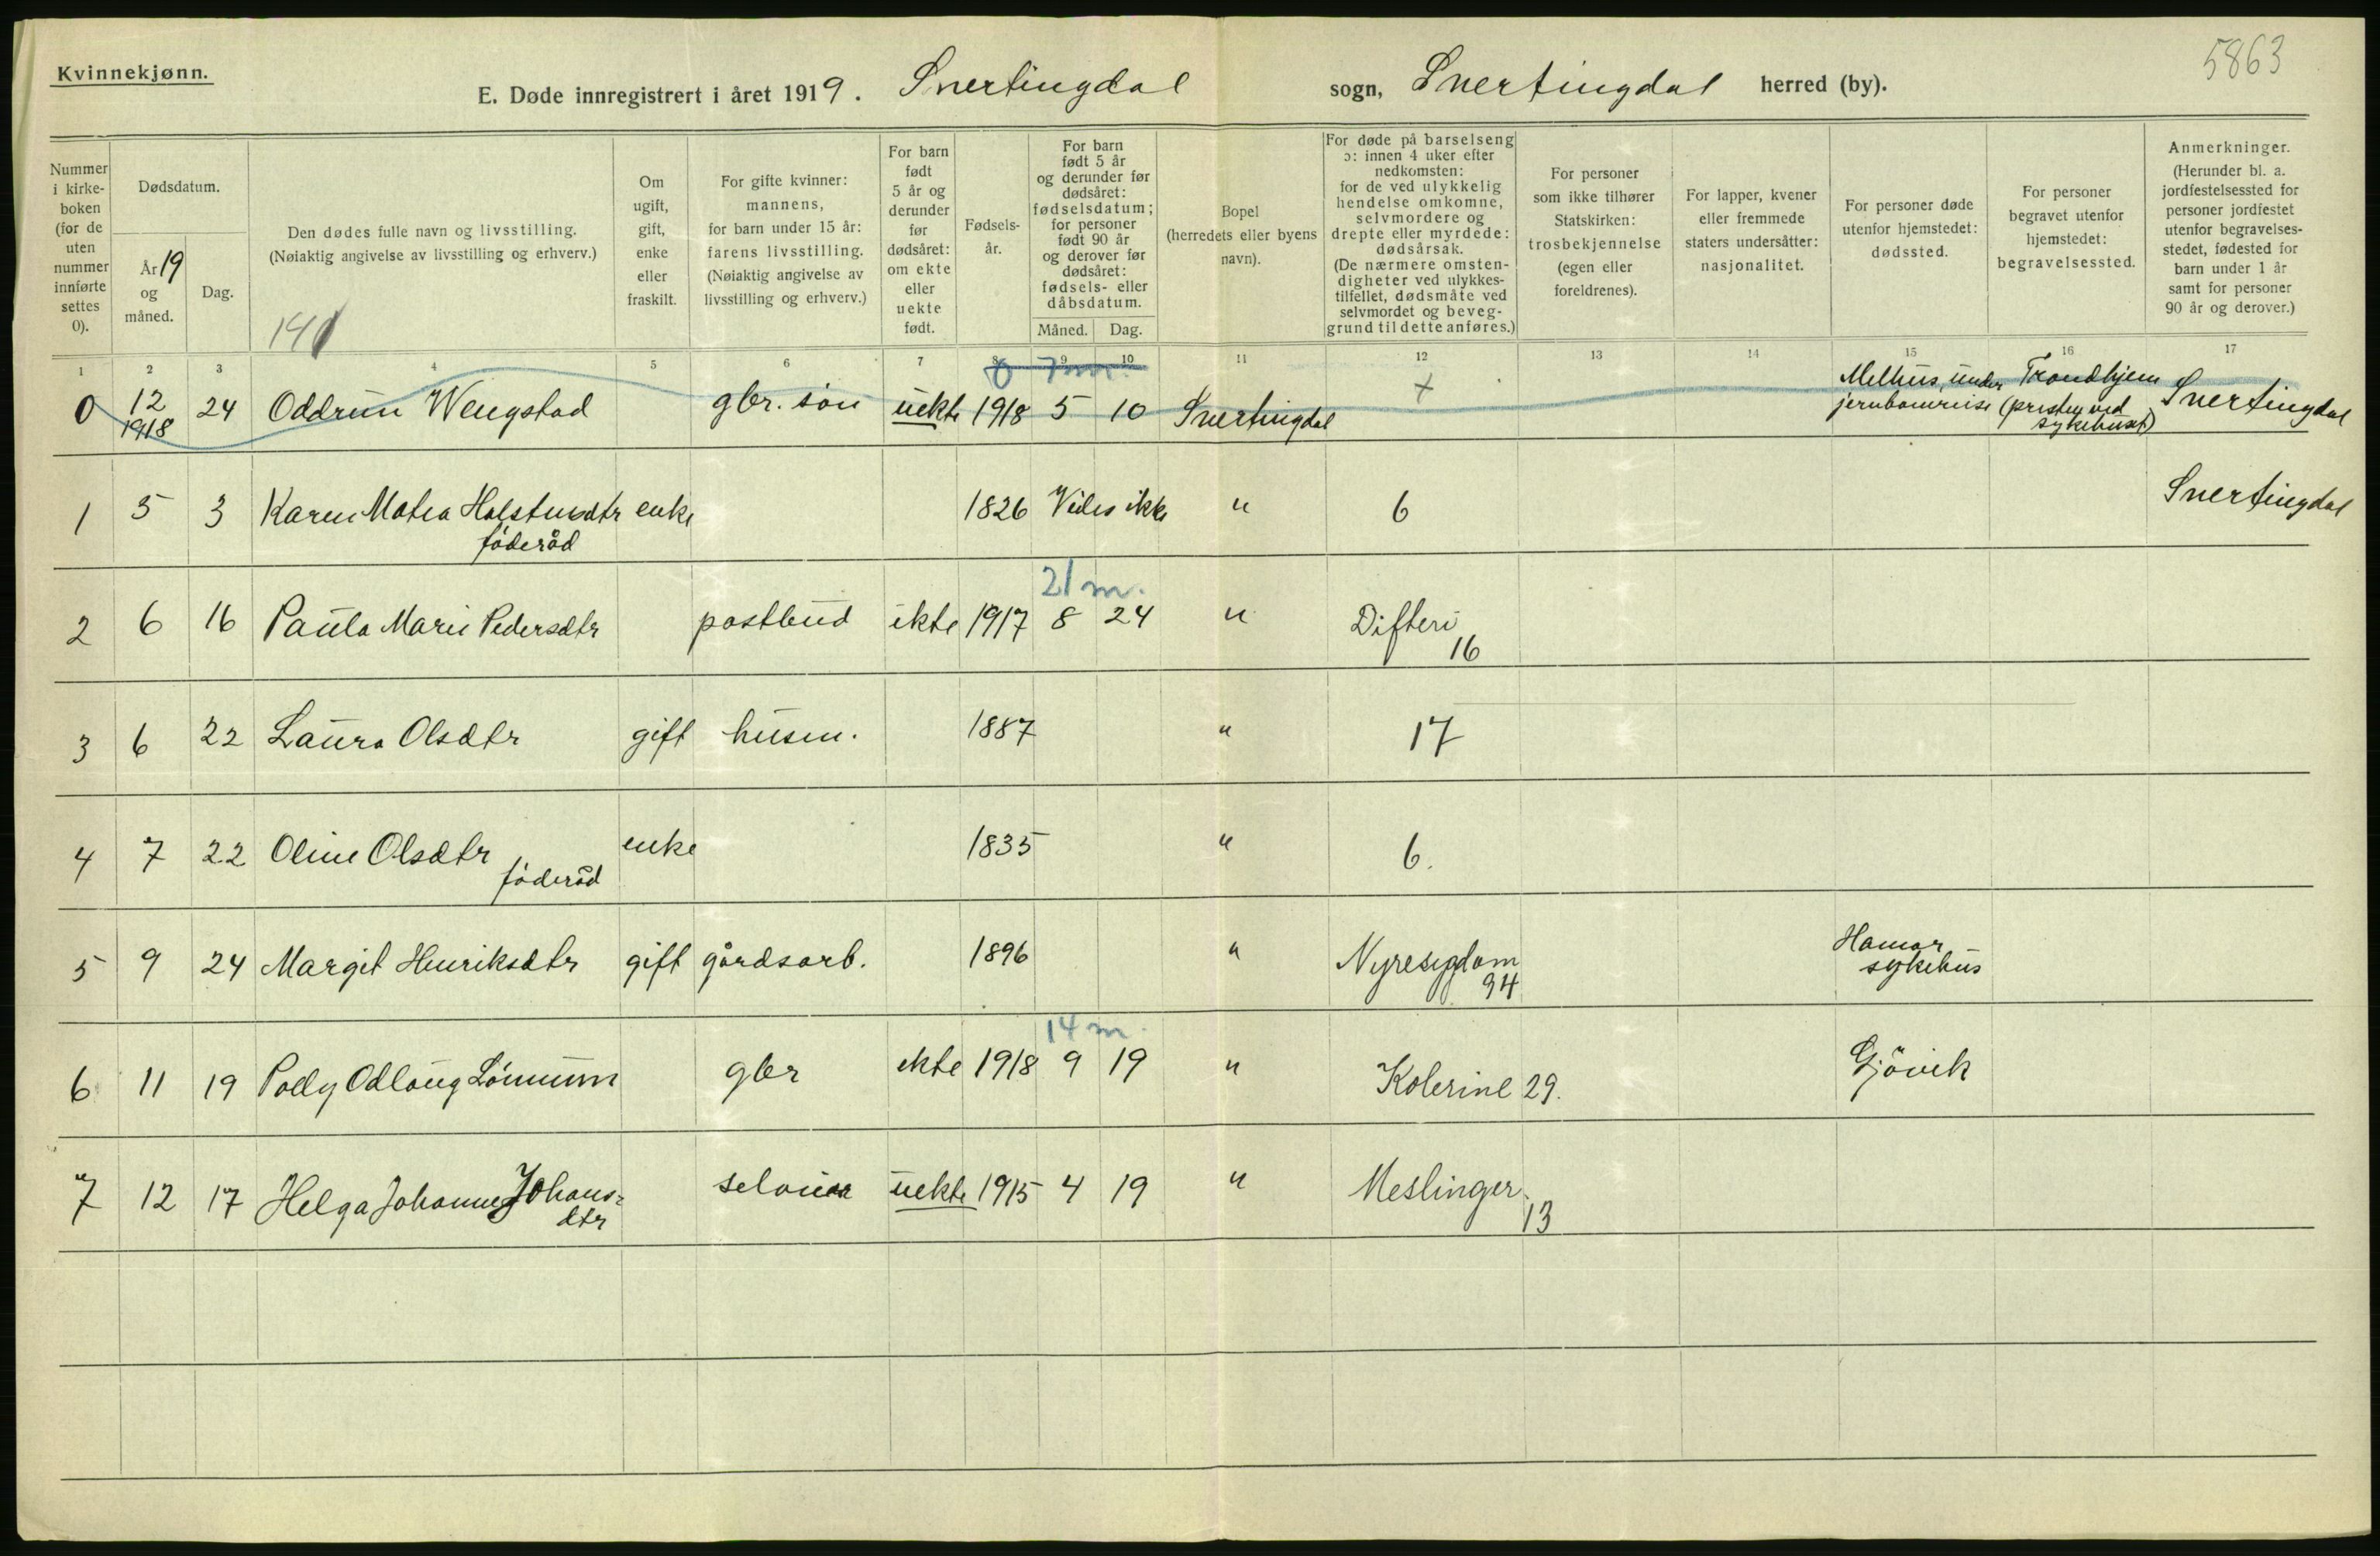 Kvinnekjønn.
5863
E. Døde innregistrert i året 1919. Snertingdal sogn, Snertingdal herred (by).
Nummer i kirke-boken (for de uten nummer innførte settes 0).
Dødsdatum.
År 19 og måned.
Dag.
Den dødes fulle navn og livsstilling.
(Nøiaktig angivelse av livsstilling og erhverv.)
Om ugift, gift, enke eller fraskilt.
For gifte kvinner: mannens, for barn under 15 år: farens livsstilling. (Nøiaktig angivelse av livsstilling og erhverv.)
For barn født 5 år og derunder før dødsåret: om ekte eller uekte født.
Fødsels-år.
For barn født 5 år og derunder før dødsåret: fødselsdatum; for personer født 90 år og derover før dødsåret: fødsels- eller dåbsdatum.
Måned. Dag.
Bopel (herredets eller byens navn).
For døde på barselseng ɔ: innen 4 uker efter nedkomsten: for de ved ulykkelig hendelse omkomne, selvmordere og drepte eller myrdede: dødsårsak. (De nærmere omsten-digheter ved ulykkes-tilfellet, dødsmåte ved selvmordet og beveg-grund til dette anføres.)
For personer som ikke tilhører Statskirken: trosbekjennelse (egen eller foreldrenes).
For lapper, kvener eller fremmede staters undersåtter: nasjonalitet.
For personer døde utenfor hjemstedet: dødssted.
For personer begravet utenfor hjemstedet: begravelsessted.
Anmerkninger. (Herunder bl. a. jordfestelsessted for personer jordfestet utenfor begravelses-stedet, fødested for barn under 1 år samt for personer 90 år og derover.)
1 2 3 4 5 6 7 8 9 10 11 12 13 14 15 16 17
0 7 m.
0 12 1918 24 Oddrun Wengstad gbr. søn uekte 1918 5 10 Snertingdal + Melhus, under jernbanereise Trondhjem (presten ved sykehuset) Snertingdal
1 5 3 Karen Matea Halstensdtr føderåd enke 1826 Vides ikke " 6 Snertingdal
21 m.
2 6 16 Paula Marie Pedersdtr postbud ekte 1917 8 24 " Difteri 16
3 6 22 Laura Olsdtr gift husm. 1887 " 17
4 7 22 Oline Olsdtr føderåd enke 1835 " 6.
5 9 24 Margit Henriksdtr gift gårdsarb. 1896 " Nyresygdom 94 Hamar sykehus
14 m.
6 11 19 Polly Odlaug Lønnum gbr ekte 1918 9 19 " Kolerine 29. Gjøvik
7 12 17 Helga Johanne Johans=dtr uekte 1915 4 19 " Meslinger. 13